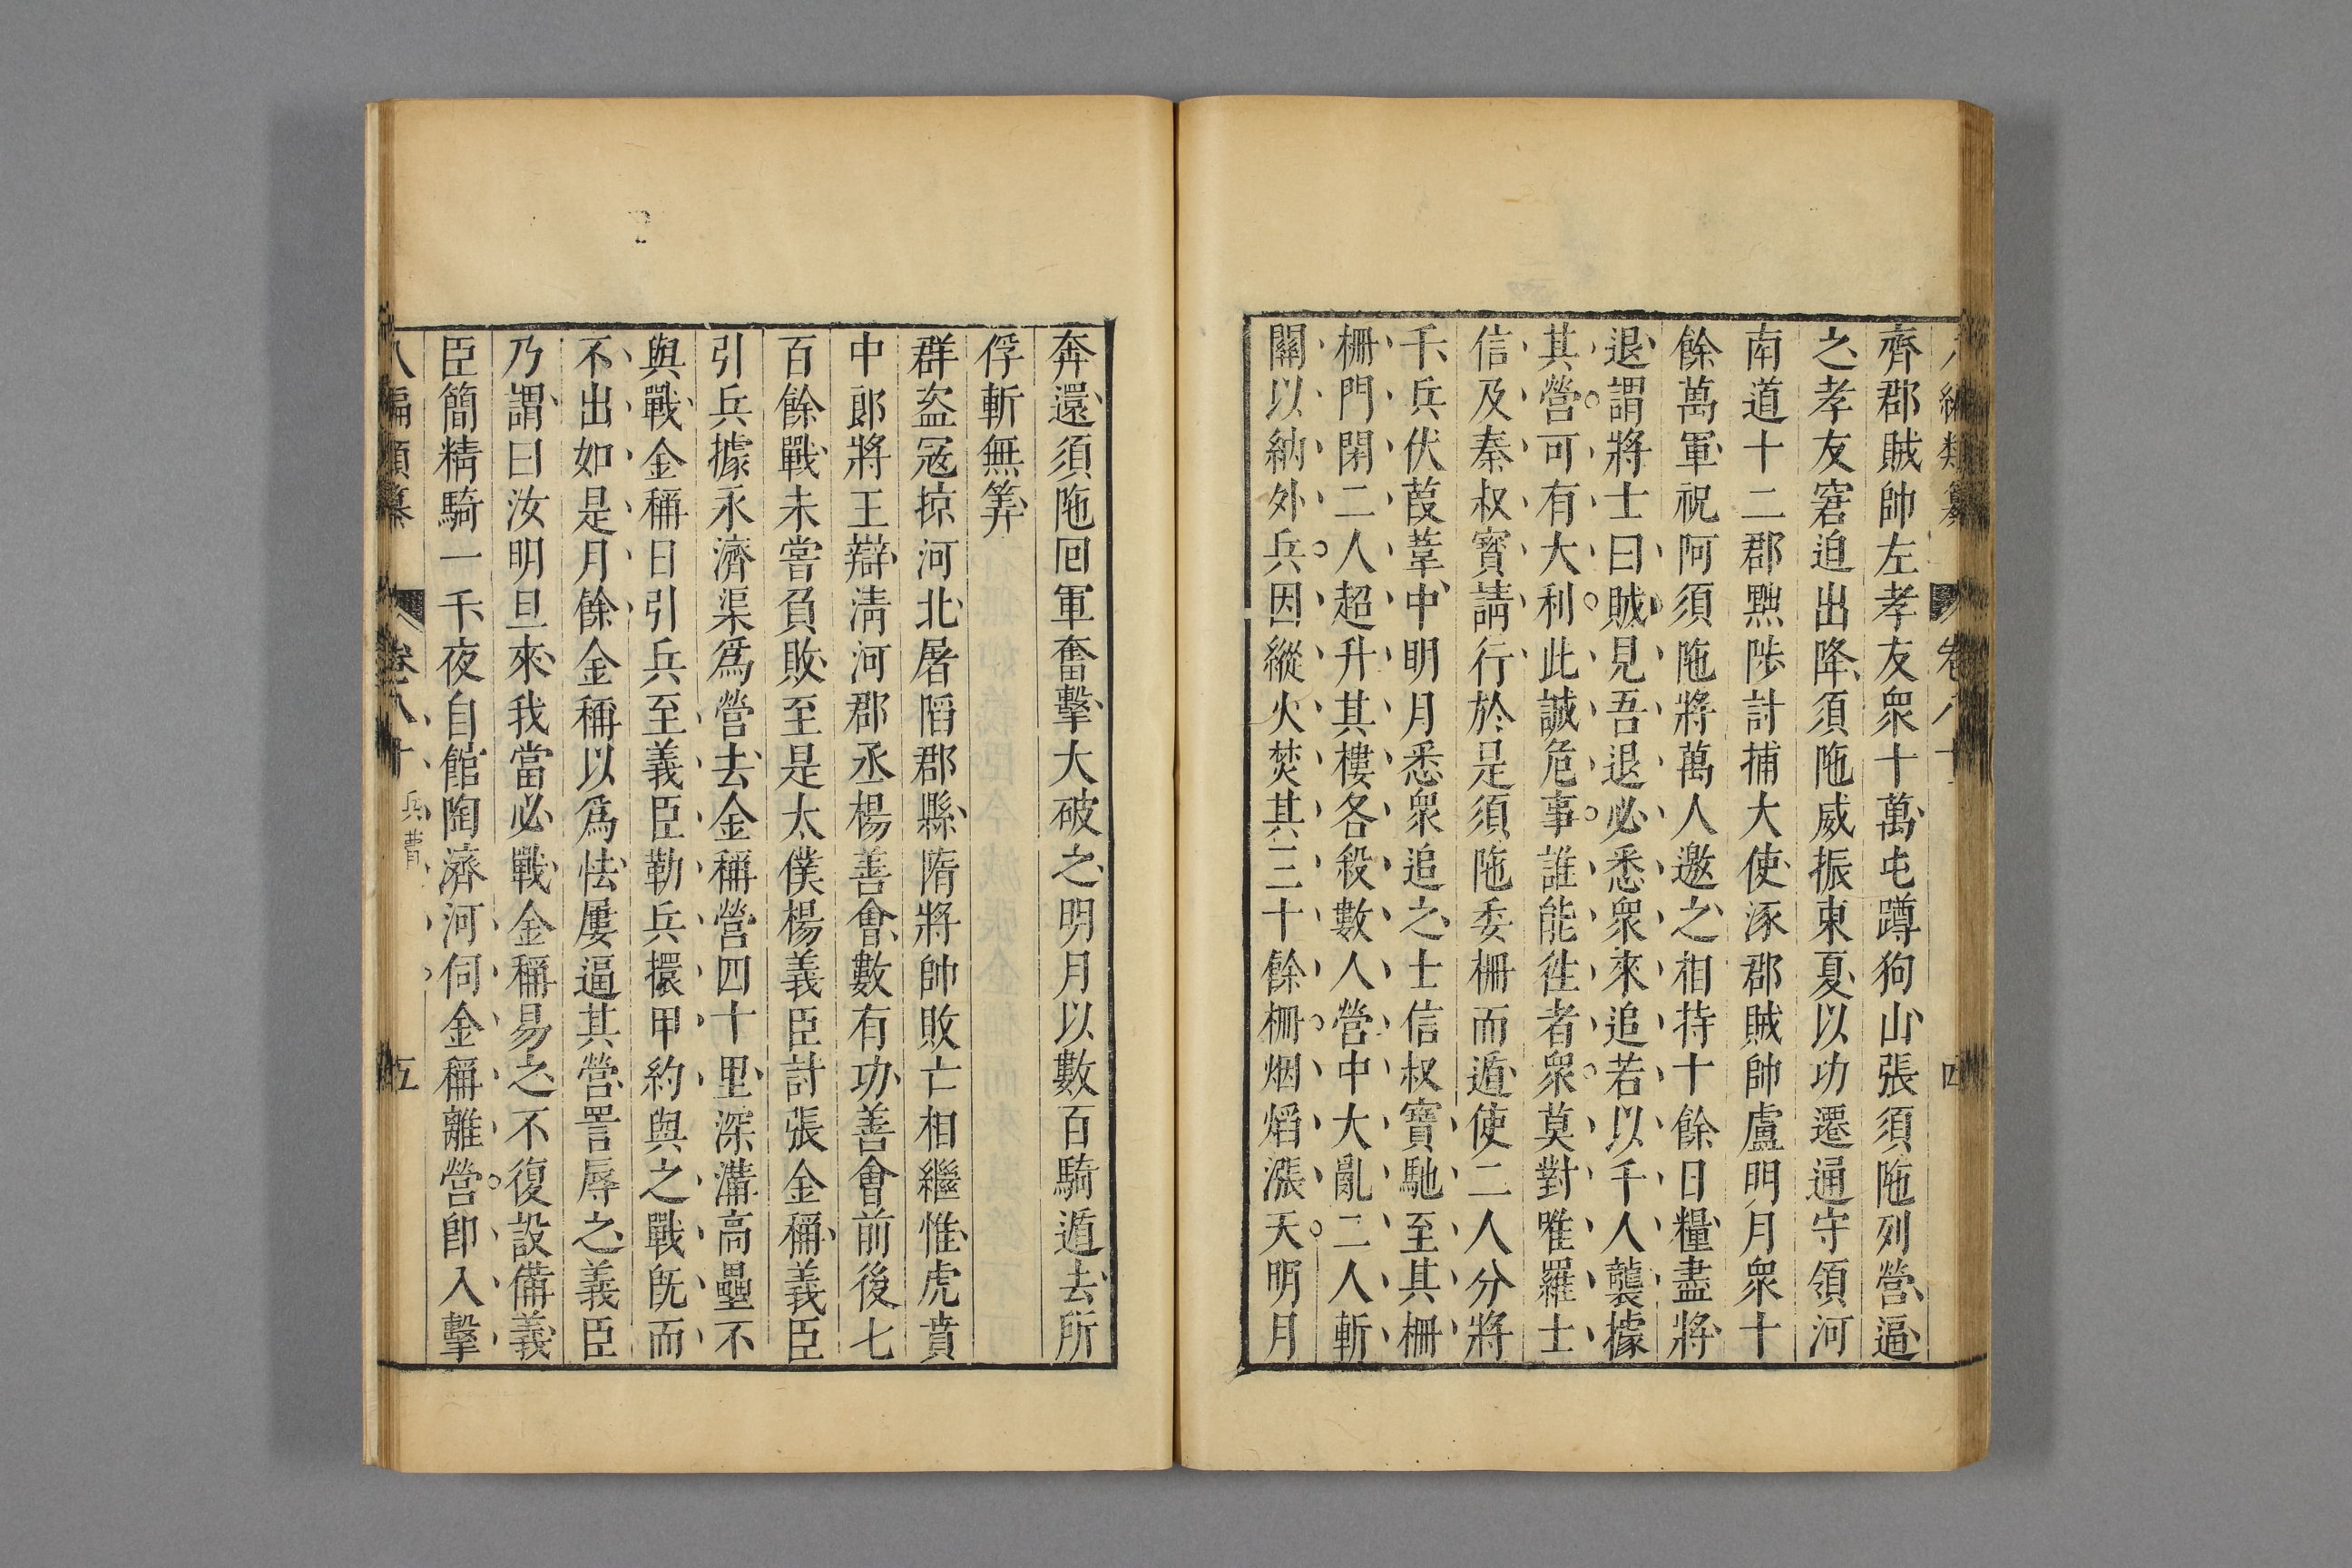 八編類纂 卷八十 四
齊郡賊帥左孝友衆十萬屯蹲狗山張須陁列營逼
之孝友窘迫出降須陁威振東夏以功遷通守領河
南道十二郡黜陟討捕大使涿郡賊帥盧明月衆十
餘萬軍祝阿須陁將萬人邀之相持十餘日糧盡將
退謂將士曰賊見吾退必悉衆來追若以千人襲據
其營可有大利此誠危事誰能徃者衆莫對唯羅士
信及秦叔寳請行於是須陁委柵而遁使二人分將
千兵伏葭葦中明月悉衆追之士信叔寳馳至其柵
柵門閉二人超升其樓各殺數人營中大亂二人斬
關以納外兵因縱火焚其三十餘柵烟焰漲天明月
奔還須陁囘軍奮擊大破之明月以數百騎遁去所
俘斬無筭
群盗冦掠河北屠䧟郡縣隋將帥敗亡相繼惟虎賁
中郎將王辯清河郡丞楊善會數有功善會前後七
百餘戰未嘗負敗至是太僕楊義臣討張金稱義臣
引兵據永濟渠爲營去金稱營四十里深溝高壘不
與戰金稱日引兵至義臣勒兵擐甲約與之戰旣而
不出如是月餘金稱以爲怯屢逼其營詈辱之義臣
乃謂曰汝明旦來我當必戰金稱易之不復設備義
臣簡精騎一千夜自館陶濟河伺金稱離營卽入擊
八編類纂 卷八十 兵 五